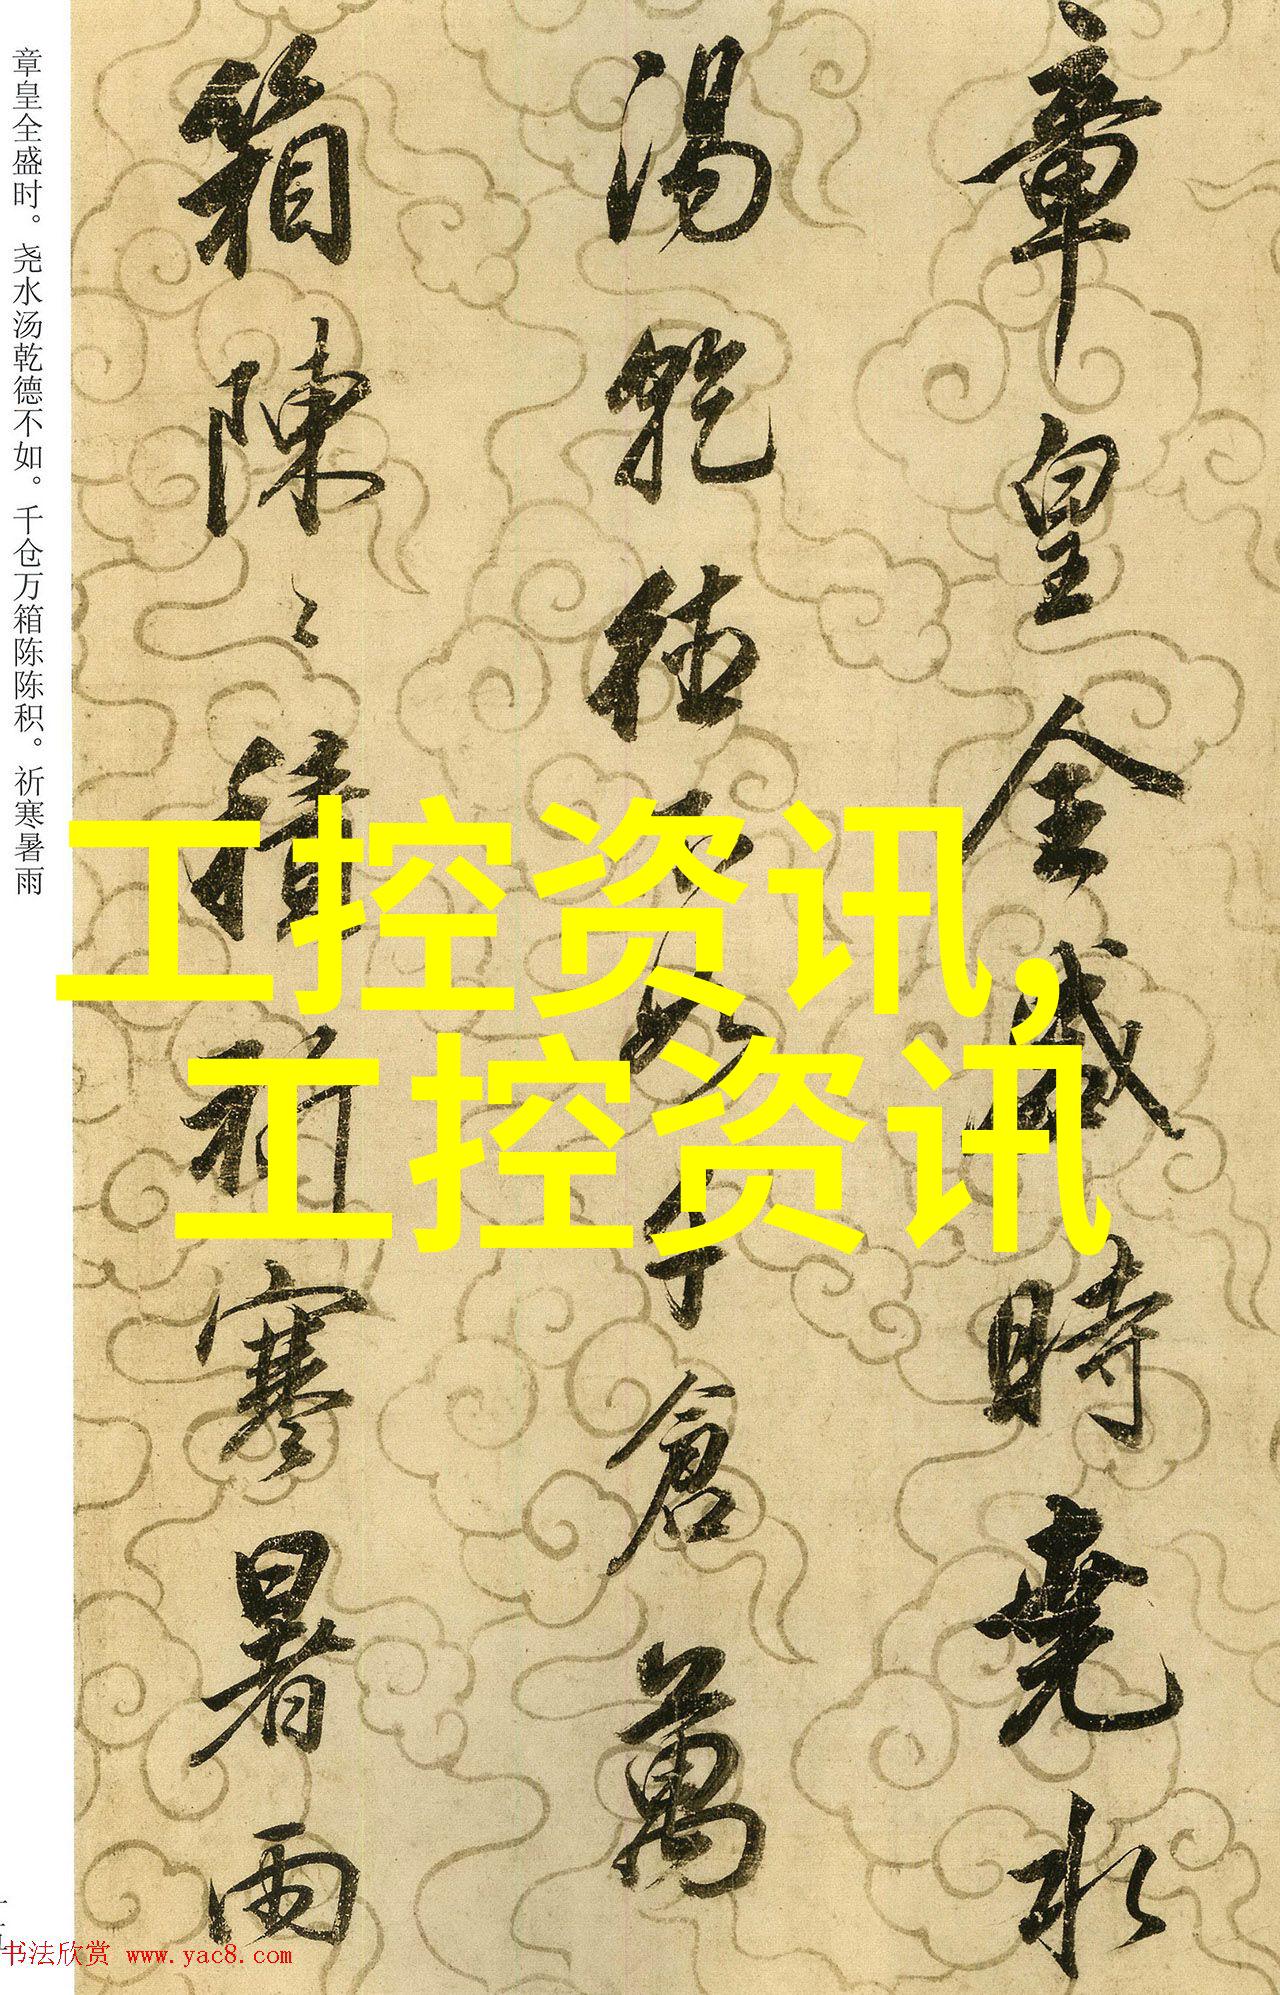 章皇全盛時堯水
湯乾德不如千倉萬
箱陳〻積祈寒暑雨
章皇全盛时。尧水汤乾德不如。千仓万箱陈陈积。祈寒暑雨
工控资讯,
工控资讯
书法欣赏 www.yac8.com